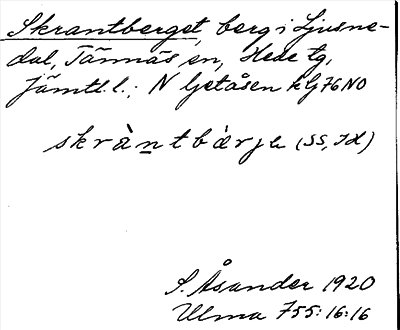 Skrantberget, berg i Ljusne-
dal, Tännäs sn, Hede tg,
Jämtl. l.; N Getåsen kG76NO
skràntbárje (SS, Id)
S. Åsander 1920
Ulma 755:16:16